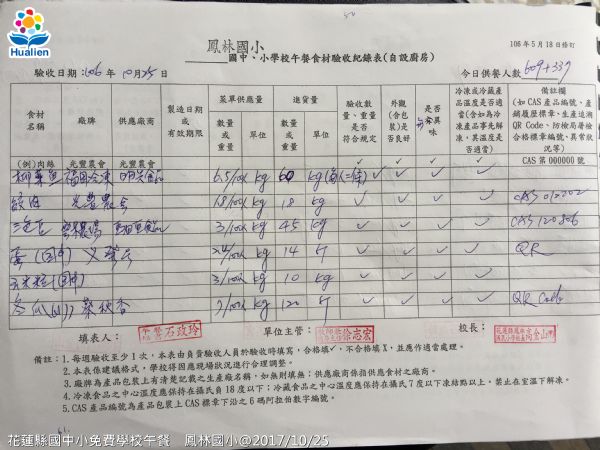 Hualien
鳳林國小
國中、小學校午餐食材驗收紀錄表(自設廚房)
106年5月18日修訂
驗收日期:106年10月25日
今日供餐人數 609+339
食材名稱
廠牌
供應廠商
製造日期或有效期限
菜單供應量
進貨量
數量或重量
單位
數量或重量
單位
驗收數量、重量是否符合規定
外觀(含包裝)是否良好
是否有異味
冷凍或冷藏產品溫度是否適當(含如為冷凍產品事先解凍,其溫度是否適當)
備註欄(如CAS產品編號、產銷履歷標章、生產追溯QR Code、防檢局署檢合格標章編號、異常狀況等)
(例)肉絲 光豐農會 光豐農會 ✓ ✓ ✓ ✓ CAS第000000號
柳葉魚 福國冷凍 6.5/100人 kg 60 kg ✓ ✓ ✓ ✓
絞肉 光豐農會 1.8/100人 kg 18 kg ✓ ✓ ✓ ✓ CAS 012202
3/100人 kg 45 kg ✓ ✓ ✓ ✓ CAS 120806
kg 14 ✓ ✓ ✓ QR
玉米粒 3/100人 kg 10 kg ✓ ✓ ✓
冬瓜 蔡秋香 kg 120 ✓ ✓ ✓ QR Code
填表人:
石玫玲
單位主管:
校長:
備註:1.每週驗收至少1次,本表由負責驗收人員於驗收時填寫,合格填✓,不合格填X,並應作適當處理。
2.本表係建議格式,學校得因應現場狀況進行合理調整。
3.廠牌為產品包裝上有清楚記載之生產廠名稱,如無則填無;供應廠商係指供應食材之廠商。
4.冷凍食品之中心溫度應保持在攝氏負18度以下;冷藏食品之中心溫度應保持在攝氏7度以下凍結點以上,禁止在室溫下解凍。
5.CAS產品編號為產品包裝上CAS標章下沿之6碼阿拉伯數字編號。
61.
花蓮縣國中小免費學校午餐 鳳林國小@2017/10/25